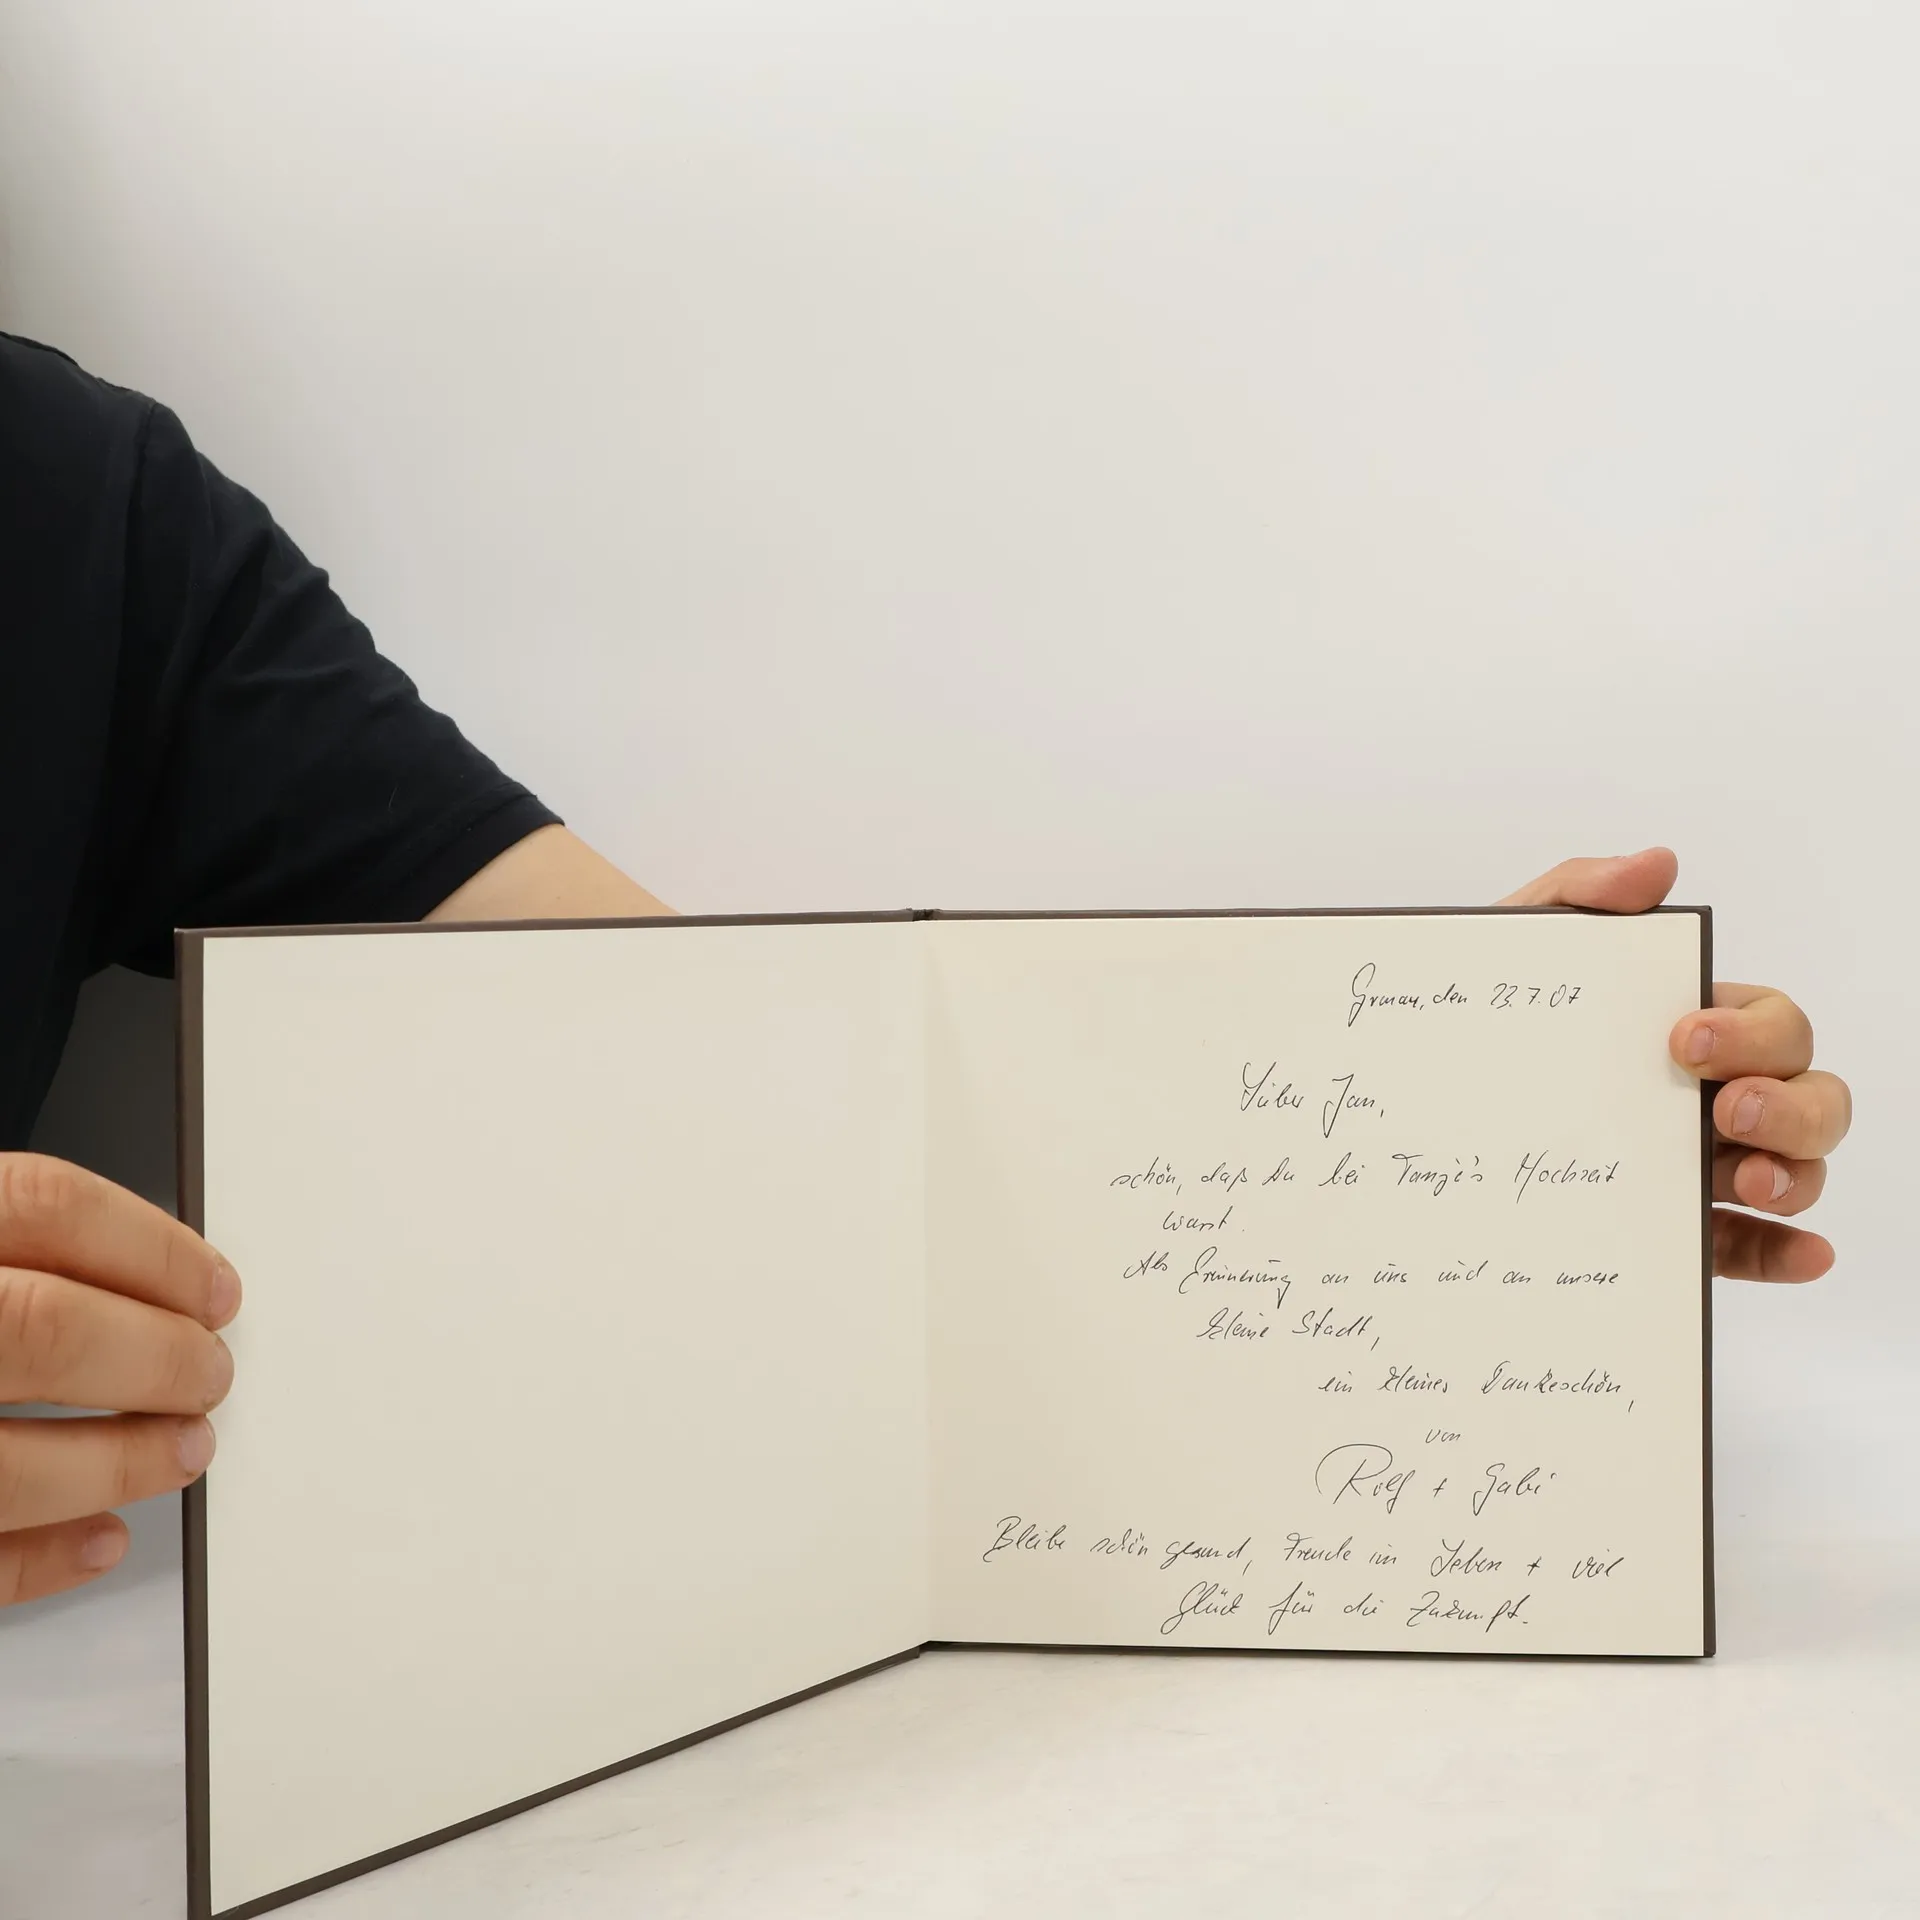 den 23.7.07
Lieber Jan,
schön, daß Du bei Tanja's Hochzeit
warst.
Als Erinnerung an uns und an unsere
kleine Stadt,
ein kleines Dankeschön,
von
Rolf + Gabi
Bleibe schön gesund, Freude im Leben + viel
Glück für die Zukunft.